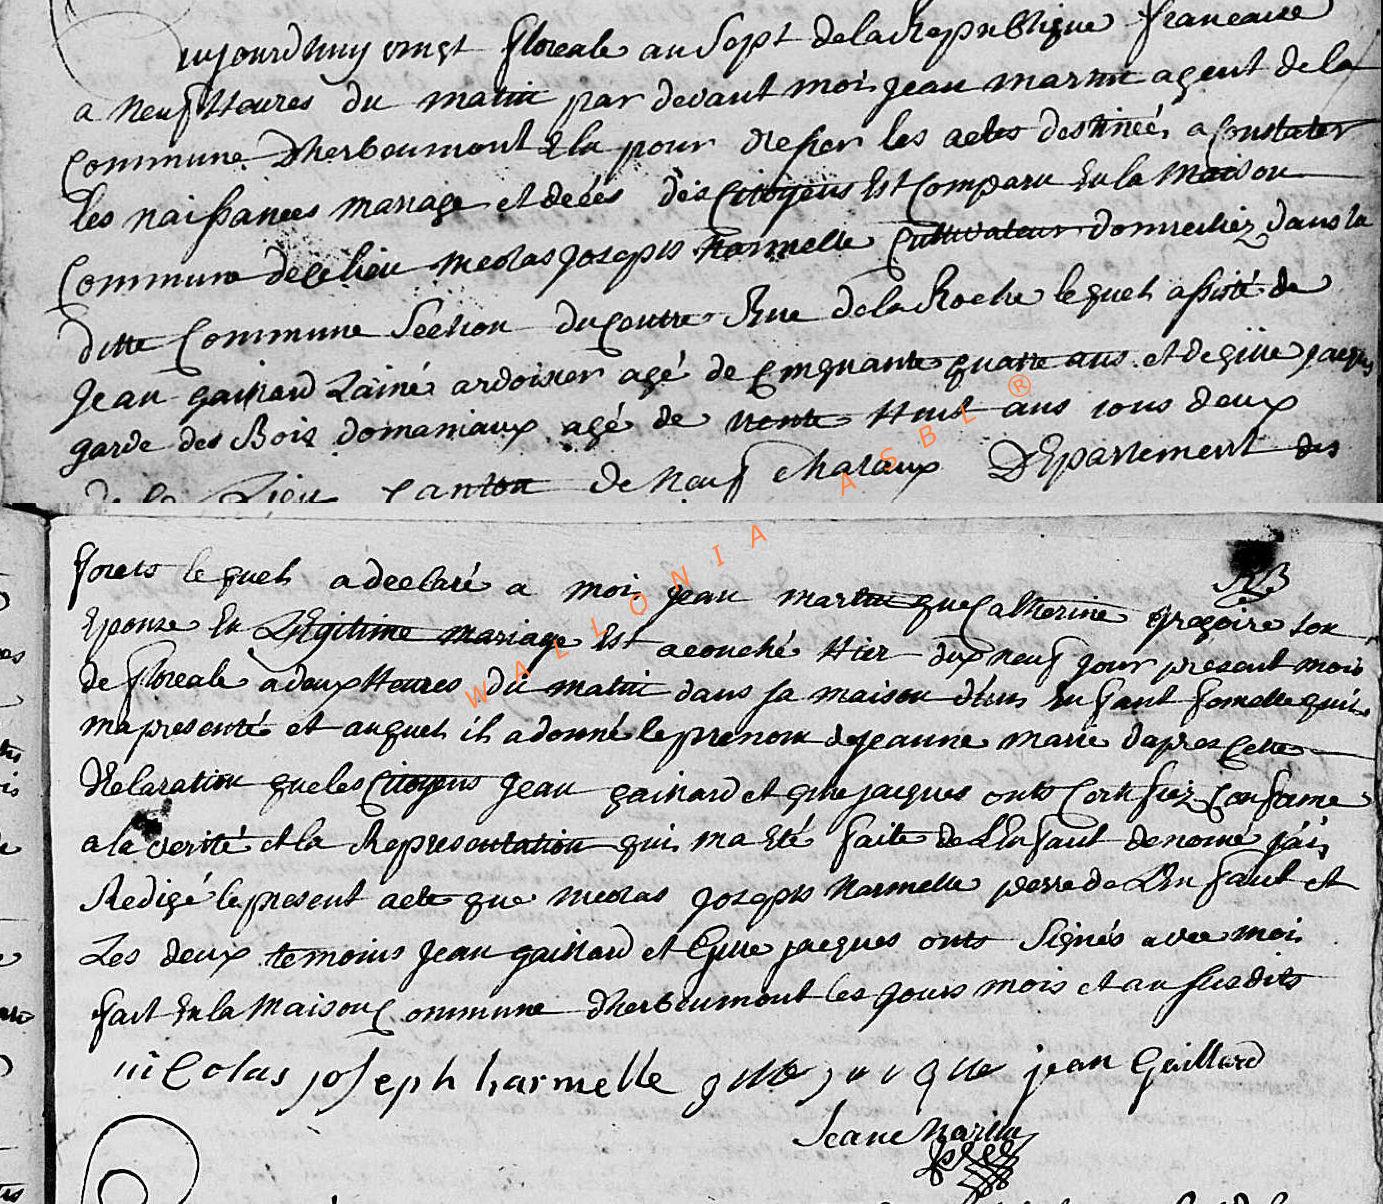 aujourdhuy vingt floreale an Sept de la Republique francaise
a neuf Heures du matin par devant moi Jean martin agent de la
Commune Dherbeumont Elu pour dresser les actes destinées a Constater
les naissances mariage et décés des Citoyens Est Comparu En la Maison
Commune de ce lieu nicolas Joseph harmelle Cultivateur domiciliez dans la
ditte Commune Section du Centre Rue de la Roche lequel assisté de
Jean gaillard Lainé ardoisier agé de Cinquante quatre ans et de gille jacques
garde des Bois domaniaux agé de trente Huit ans tous deux
de ce Lieu Canton de Neuf chataux Département des
forets lequel a declaré a moi Jean martin que Catherine gregoire son
Epouse En Legitime mariage Est acouché Hier dix neuf jour present mois
de floreale a deux Heures du matin dans sa maison d'un Enfant femelle qui
ma presenté et auquel il a donné le prenom de jeanne marie dapres Cette
Declaration que les Citoyens Jean gaillard et gille jacques onts Certifiez Conforme
a la verité et la Representation qui ma Eté faite de LEnfant denomé j'ái
Redigé le present acte que nicolas Joseph harmelle perre de LEnfant et
Les deux temoins Jean gaillard et Gille jacques onts Signés avec moi
fait En la Maison Commune dherbeumont les jours mois et an susdits
nicolas joseph harmelle gille jacque jean Gaillard
Jean Martin
WALLONIA ASBL ®